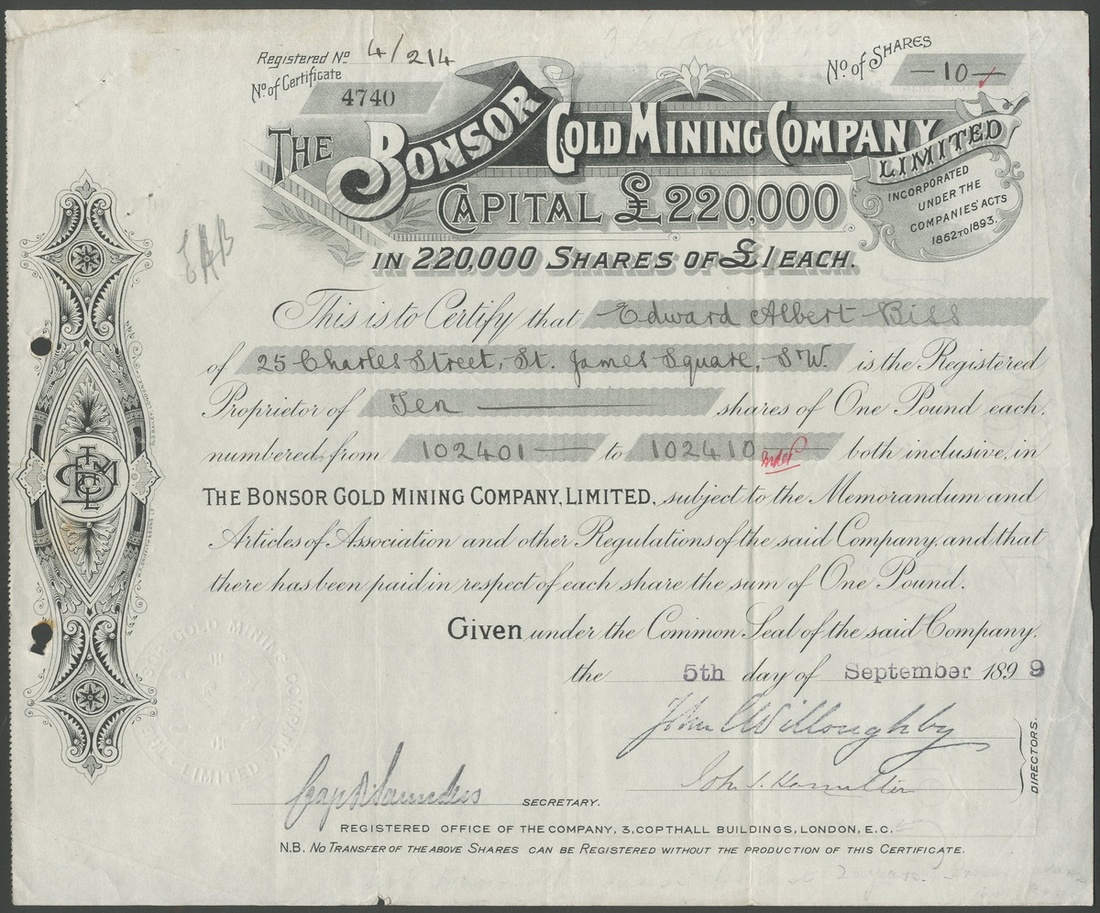 Registered No 4/214
No. of Certificate
4740
No. of SHARES
—10—
THE BONSOR GOLD MINING COMPANY
LIMITED
CAPITAL £220,000
INCORPORATED
UNDER THE
COMPANIES' ACTS
1862 TO 1893.
IN 220,000 SHARES OF £1 EACH.
This is to Certify that Edward Albert Biss
of 25 Charles Street, St. James Square, S.W. is the Registered
Proprietor of Ten shares of One Pound each,
numbered from 102401 — to 102410 — both inclusive, in
THE BONSOR GOLD MINING COMPANY, LIMITED, subject to the Memorandum and
Articles of Association and other Regulations of the said Company, and that
there has been paid in respect of each share the sum of One Pound.
Given under the Common Seal of the said Company,
the 5th day of September 1899
John C Willoughby
John S. Hamilton
DIRECTORS.
SECRETARY.
REGISTERED OFFICE OF THE COMPANY, 3, COPTHALL BUILDINGS, LONDON, E.C.
N.B. NO TRANSFER OF THE ABOVE SHARES CAN BE REGISTERED WITHOUT THE PRODUCTION OF THIS CERTIFICATE.